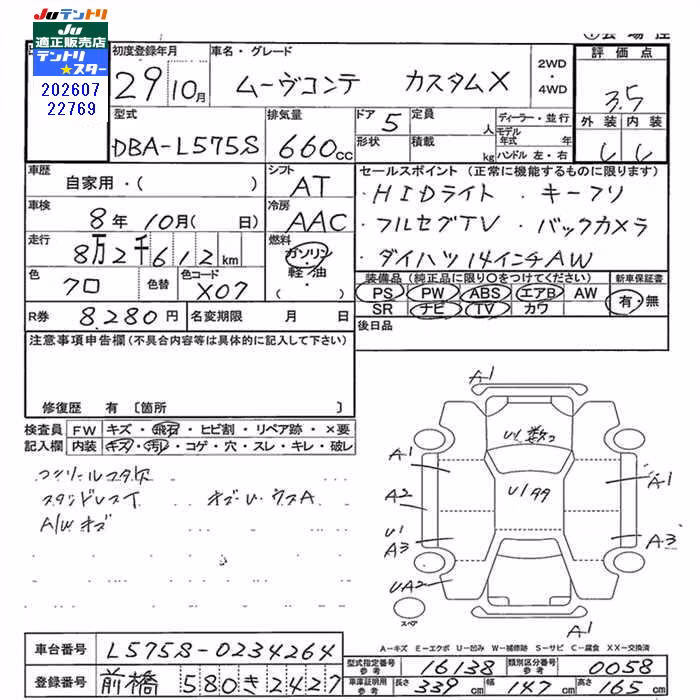 Juテントリ
JU
適正販売店
テントリ
★スター
202607
22769
初度登録年月
29 10月
車名・グレード
ムーヴコンテ カスタムX
2WD
・
4WD
評価点
3.5
外装 内装
型式
DBA-L575S
排気量
660cc
ドア 5
形状
定員 人
積載 kg
ディーラー・並行
モデル年式 年
ハンドル 左・右
車歴
自家用・( )
シフト
AT
セールスポイント (正常に機能するものに限ります)
・HIDライト ・キーフリ
・フルセグTV ・バックカメラ
・ダイハツ14インチAW
車検
8年 10月( 日)
冷房
AAC
走行
8万2千612km
燃料
ガソリン
・
軽油
( )
色
クロ
色替
色コード
X07
装備品 (純正品に限り○をつけてください)
PS PW ABS エアB AW
SR ナビ TV カワ
新車保証書
有・無
R券 8,280円
名変期限 月 日
後日品
注意事項申告欄(不具合内容等は具体的に記入して下さい)
修復歴 有 〔箇所 〕
検査員
記入欄
FW キズ・飛石・ヒビ割・リペア跡・×要
内装 キズ・汚レ・コゲ・穴・スレ・キレ・破レ
A/Wキズ
A1
A1
A2
U1
A3
UA2
U1
A1
A3
A1
スペア
A-キズ E-エクボ U-凹み W-補修跡 S-サビ C-腐食 XX-交換済
車台番号 L575S-0234264
登録番号 前橋 580 き 2427
型式指定番号 参考 16138
類別区分番号 参考 0058
車庫証明用 参考
長さ 339cm 幅 147cm 高さ 165cm